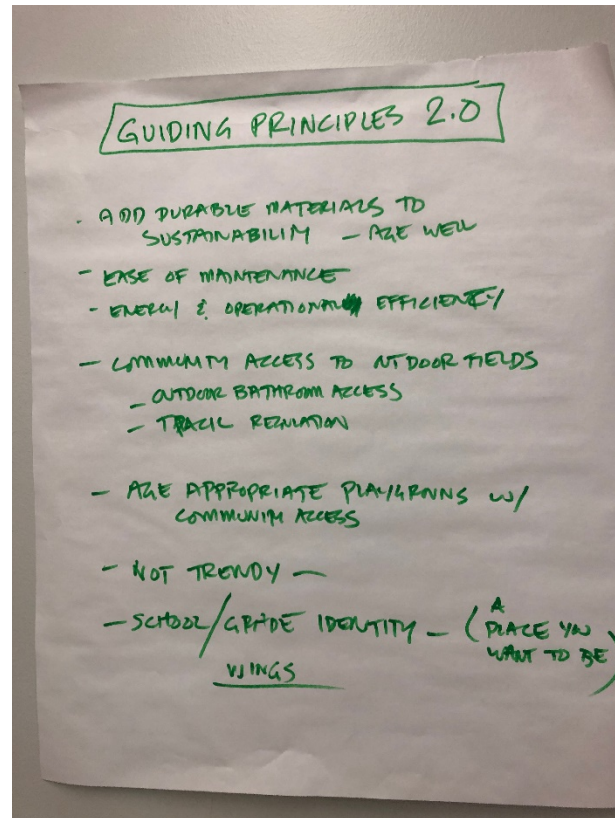 GUIDING PRINCIPLES 2.0
· ADD DURABLE MATERIALS TO
SUSTAINABILITY – AGE WELL
- EASE OF MAINTENANCE
- ENERGY & OPERATIONAL EFFICIENCY
- COMMUNITY ACCESS TO OUTDOOR FIELDS
- OUTDOOR BATHROOM ACCESS
- TRACK REGULATION
- AGE APPROPRIATE PLAYGROUNDS W/
COMMUNITY ACCESS
- NOT TRENDY –
- SCHOOL/GRADE IDENTITY – (A PLACE YOU
WANT TO BE)
WINGS